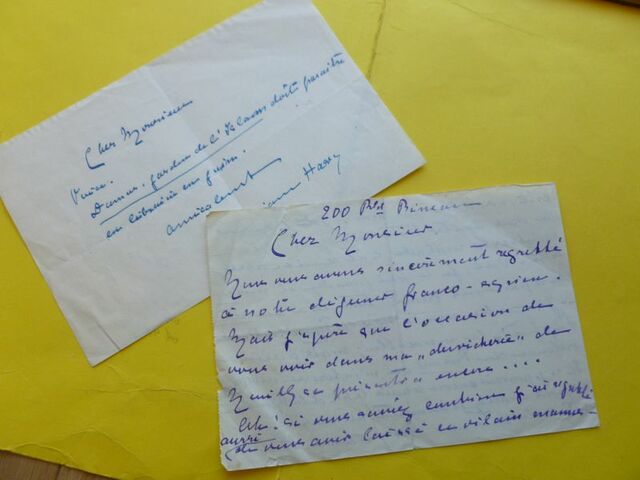 Cher Monsieur
Voici.
Damas, jardin de l'Islam doit paraître
en librairie en juin.
amicalement
Myriam Harry
200 Bd Bineau
Cher Monsieur
Nous vous avons sincèrement regretté
à notre déjeuner franco-syrien.
Mais j'espère que l'occasion de
vous voir dans ma "dervicherie" de
Neuilly se présentera encore....
Ah! si vous saviez combien j'ai regretté
aussi
de vous avoir laissé ce vilain manus-